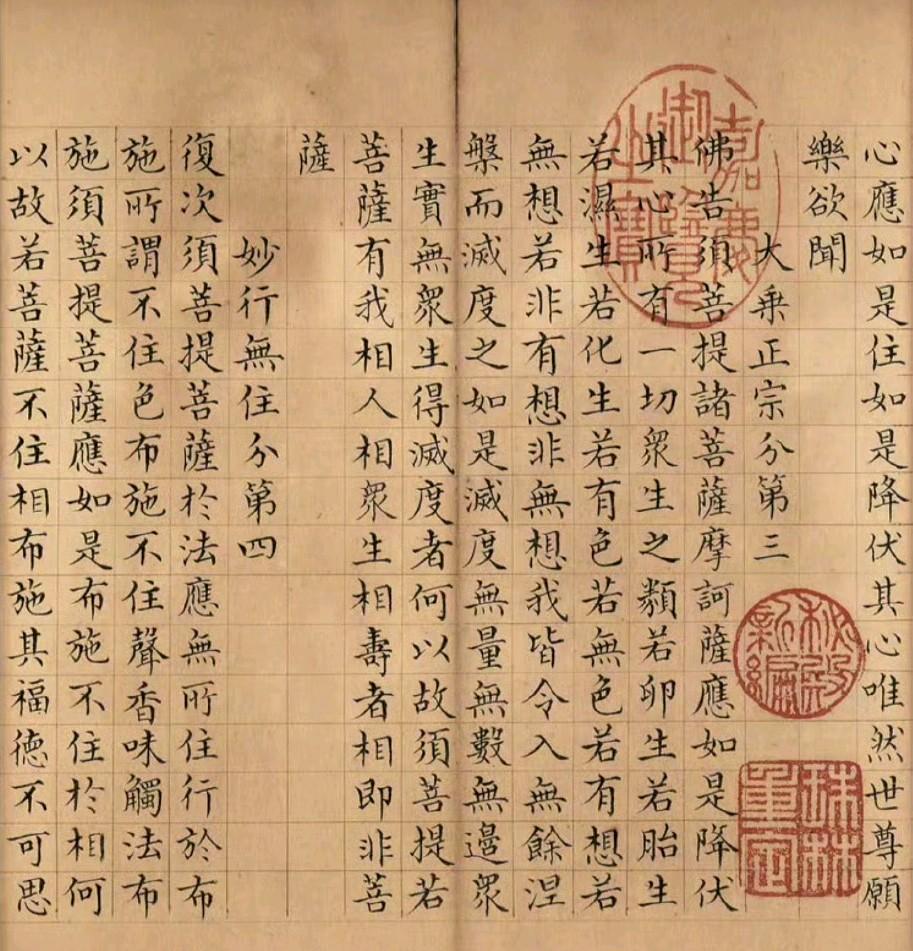 心應如是住如是降伏其心唯然世尊願
樂欲聞
大乗正宗分第三
佛告須菩提諸菩薩摩訶薩應如是降伏
其心所有一切衆生之類若卵生若胎生
若濕生若化生若有色若無色若有想若
無想若非有想非無想我皆令入無餘涅
槃而滅度之如是滅度無量無數無邊衆
生實無衆生得滅度者何以故須菩提若
菩薩有我相人相衆生相壽者相即非菩
薩
妙行無住分第四
復次須菩提菩薩於法應無所住行於布
施所謂不住色布施不住聲香味觸法布
施須菩提菩薩應如是布施不住於相何
以故若菩薩不住相布施其福德不可思
嘉慶
御覽
之寶
秘殿
新編
珠林
重定